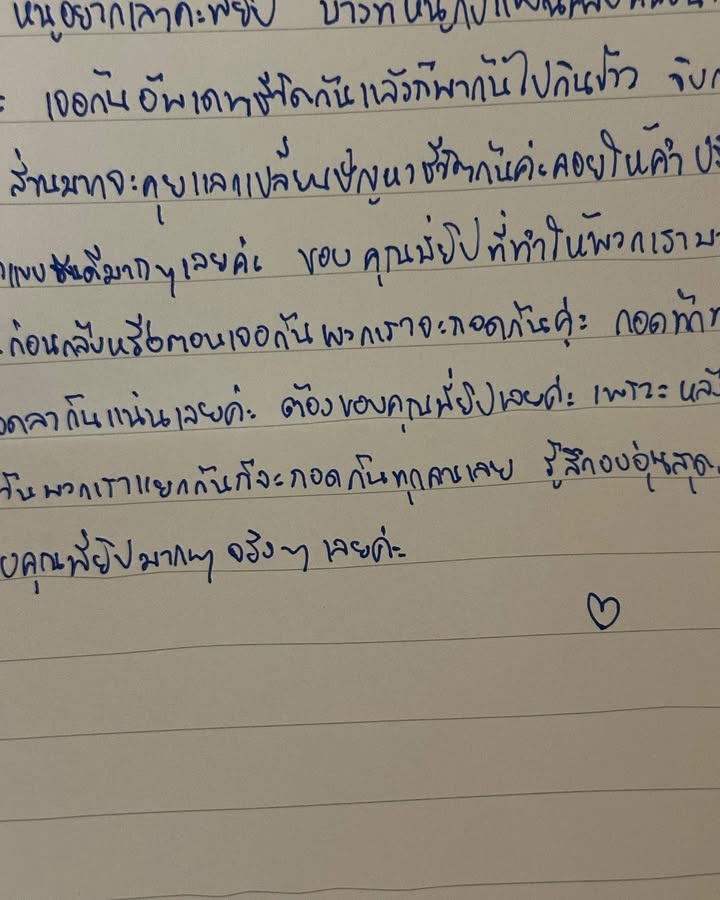 หนูอยากเล่าค่ะพี่ยิป บางที หนูกับ
เจอกันอัพเดทชีวิตกันแล้วก็พากันไปกินข้าว
ส่วนมากจะคุยแลกเปลี่ยนปัญหาชีวิตกันค่ะคอยให้คำ
ดีมากๆเลยค่ะ ขอบคุณพี่ยิปที่ทำให้พวกเรา
ก่อนกลับหรือตอนเจอกันพวกเราจะกอดกันค่ะ กอด
ลากันแน่นเลยค่ะ ต้องขอบคุณพี่ยิปเลยค่ะ เพราะ
พวกเราแยกกันก็จะกอดกันทุกคนเลย รู้สึกอบอุ่นสุด
คุณพี่ยิปมากๆ จริงๆ เลยค่ะ